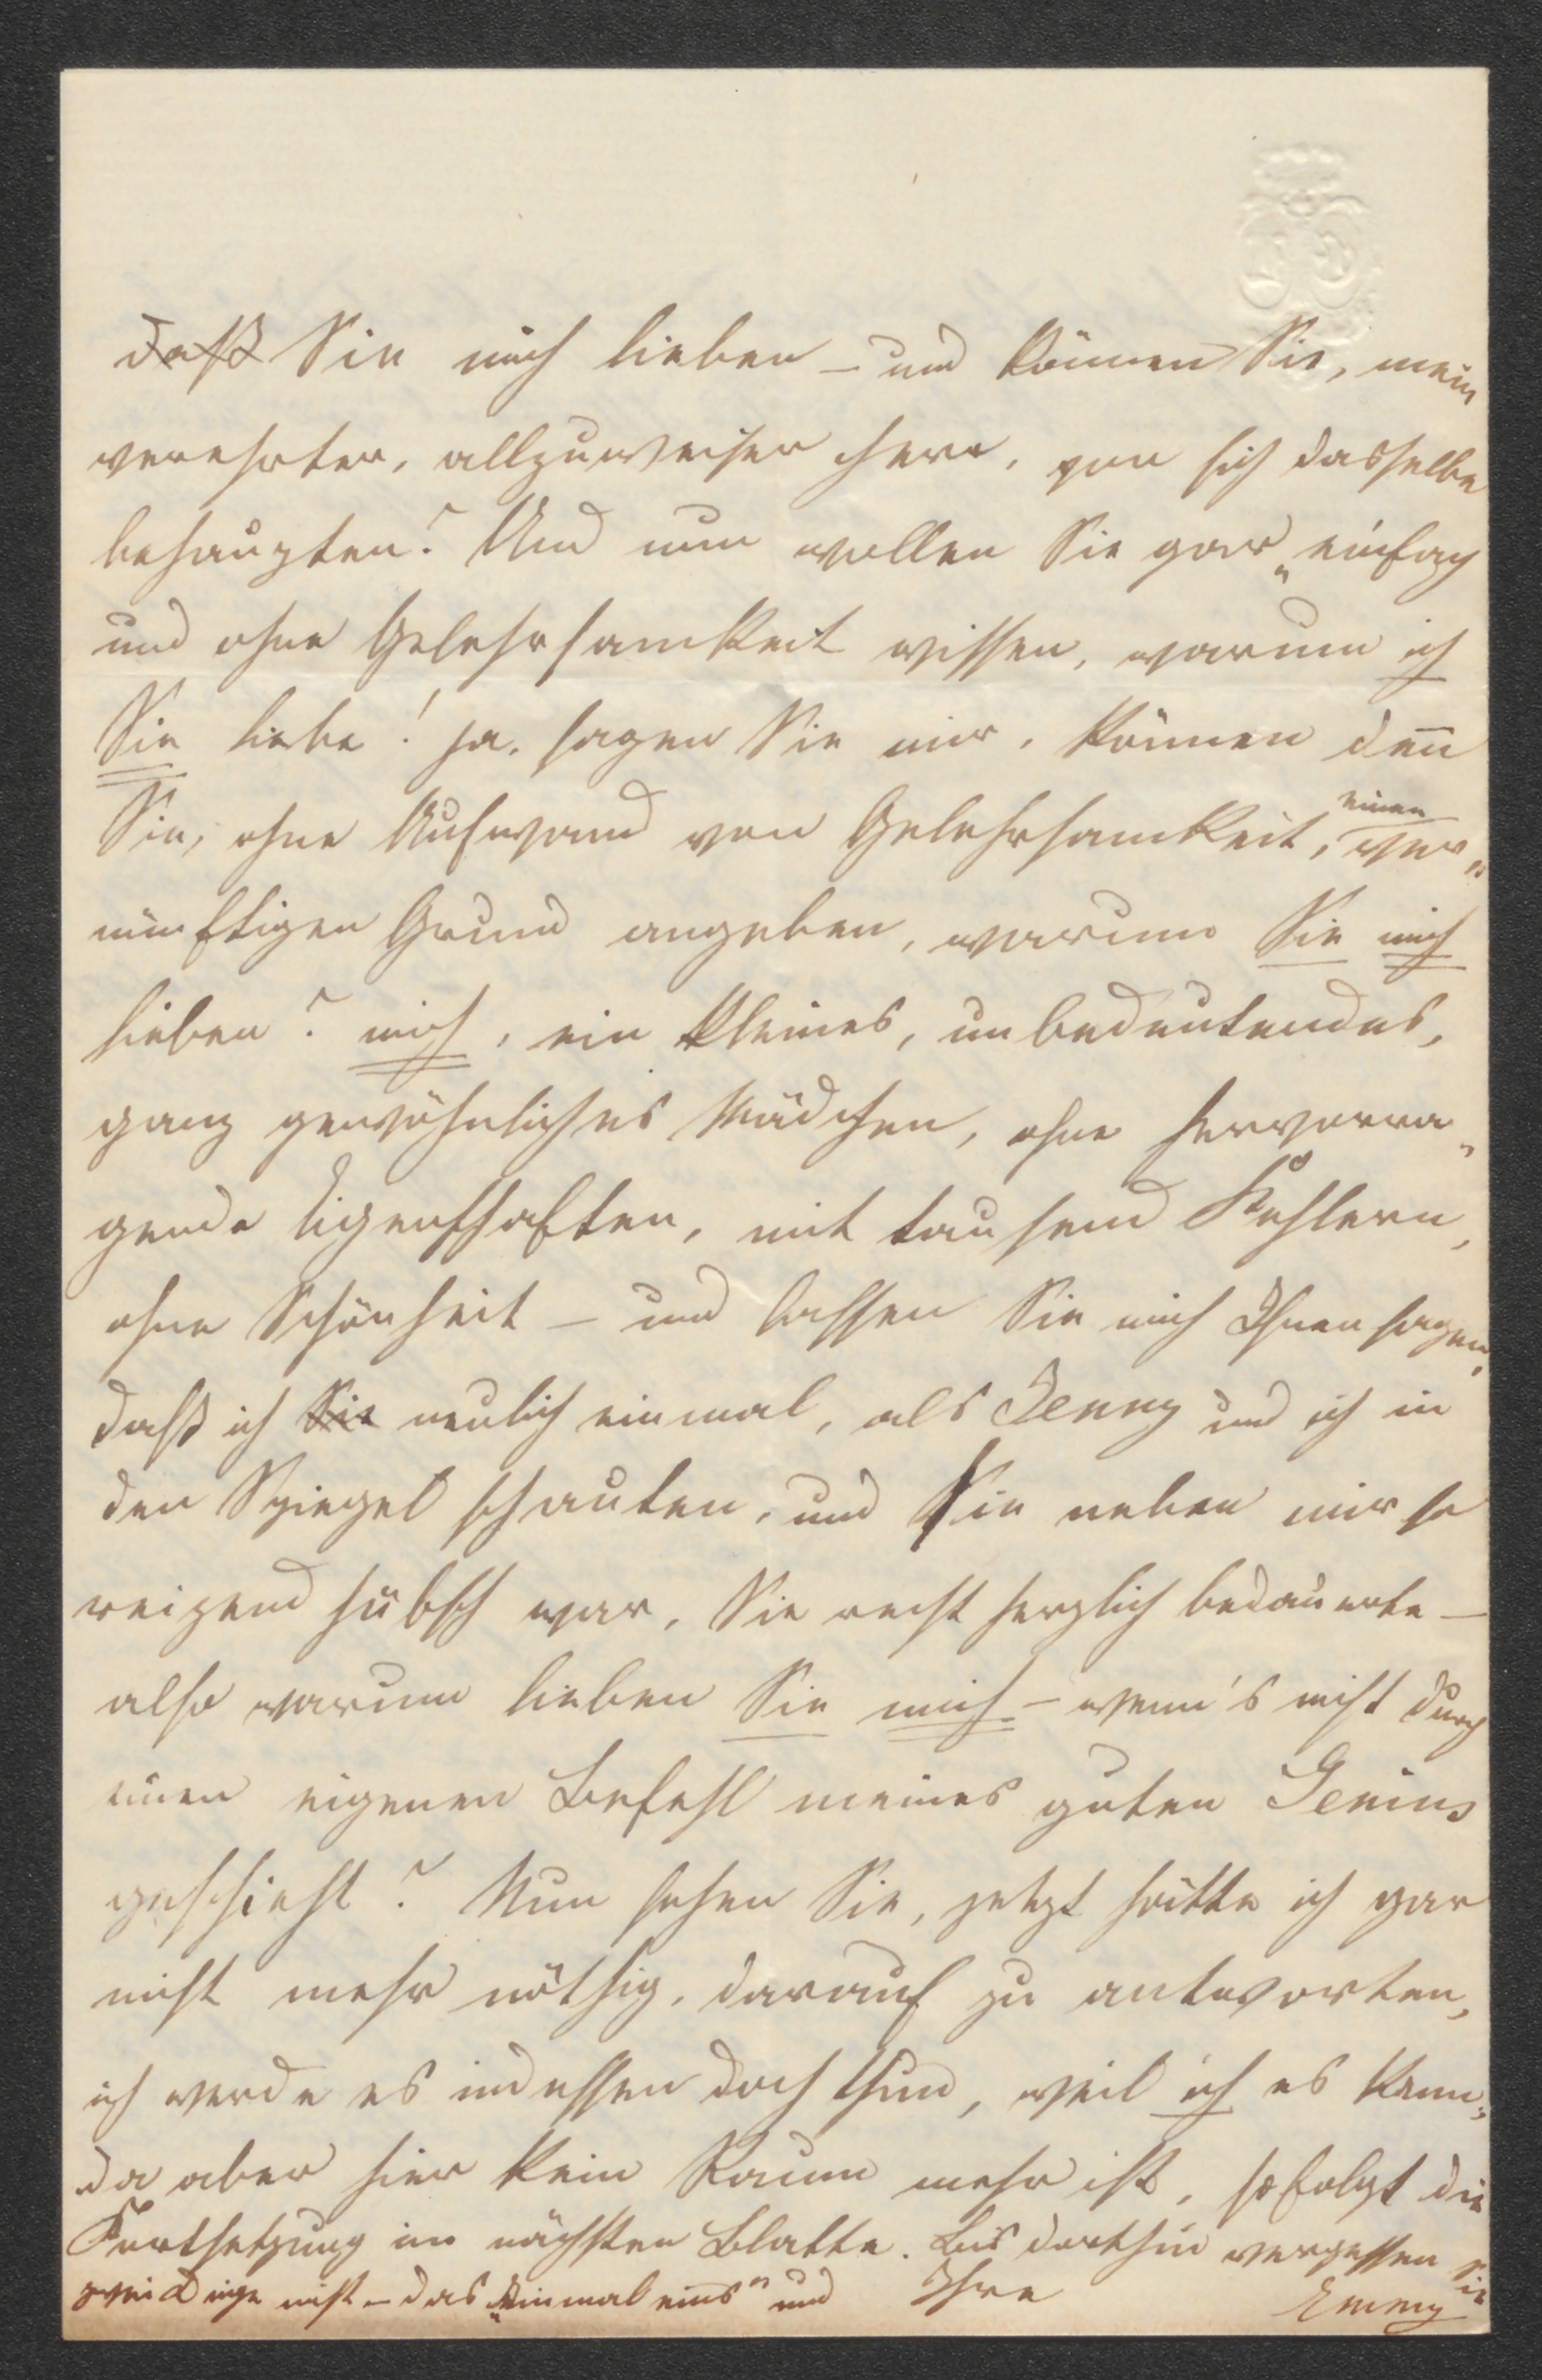 daß Sie mich lieben – und können Sie, mein
verehrter, allzuweiser Herr, von sich dasselbe
behaupten? Und nun wollen Sie gar „einfach
und ohne Gelehrsamkeit wissen, warum ich
Sie liebe! ja, sagen Sie mir, können deñ
Sie, ohne Aufwand von Gelehrsamkeit, einen ver„
nünftigen Grund angeben, warum Sie mich
lieben? mich, ein kleines, unbedeutendes,
ganz gewöhnliches Mädchen, ohne hervorra„
gende Eigenschaften, mit tausend Fehlern,
ohne Schönheit – und lassen Sie mich Ihnen sagen,
daß ich Sie neulich einmal, als Jenny und ich in
den Spiegel schauten, und Sie neben mir so
reizend hübsch war, Sie recht herzlich bedauerte –
also warum lieben Sie mich – wenn's nicht durch
einen eigenen Befehl meines guten Genius
geschieht? Nun sehen Sie, jetzt hätte ich gar
nicht mehr nöthig, darauf zu antworten,
ich werde es indessen doch thun, weil ich es kann;
da aber hier kein Raum mehr ist, so folgt die
Fortsetzung im nächsten Blatte. Bis dorthin vergessen Sie
zwei Dinge nicht – das „Einmal eins" und Ihre
Emmy